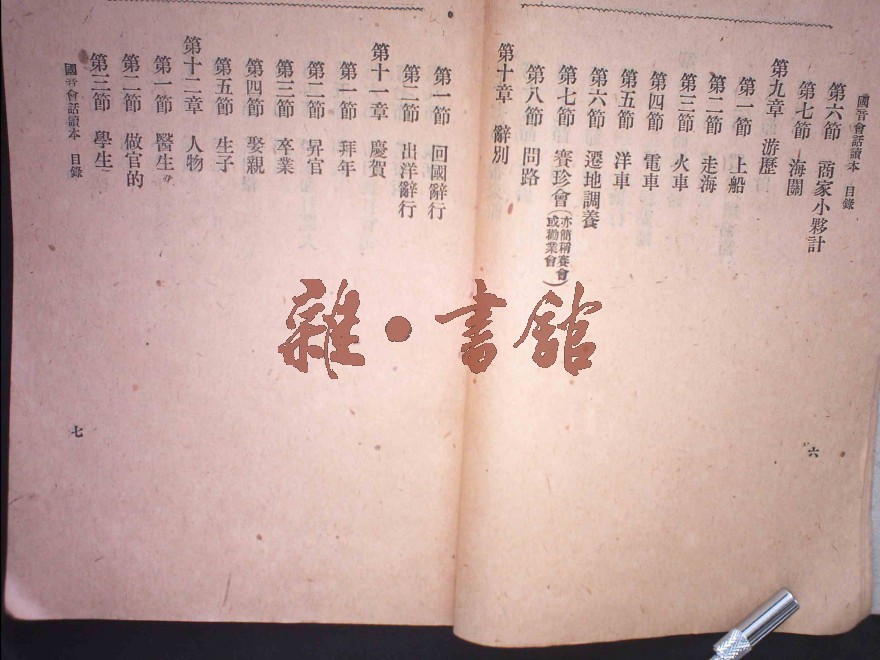 國音會話讀本 目錄
第六節 商家小夥計
第七節 海關
第九章 游歷
第一節 上船
第二節 走海
第三節 火車
第四節 電車
第五節 洋車
第六節 遷地調養
第七節 賽珍會（亦簡稱賽會或勸業會）
第八節 問路
第十章 辭別
六
第一節 回國辭行
第二節 出洋辭行
第十一章 慶賀
第一節 拜年
第二節 昇官
第三節 卒業
第四節 娶親
第五節 生子
第十二章 人物
第一節 醫生
第二節 做官的
第三節 學生
國音會話讀本 目錄
七
雜·書館